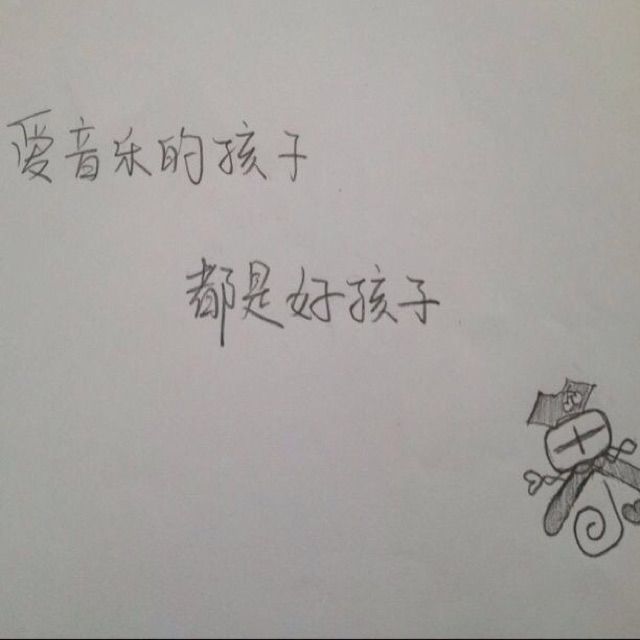 爱音乐的孩子
都是好孩子